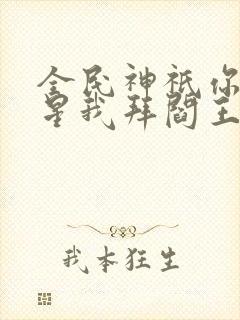 全民神祇你
星我拜阎王
我本狂生